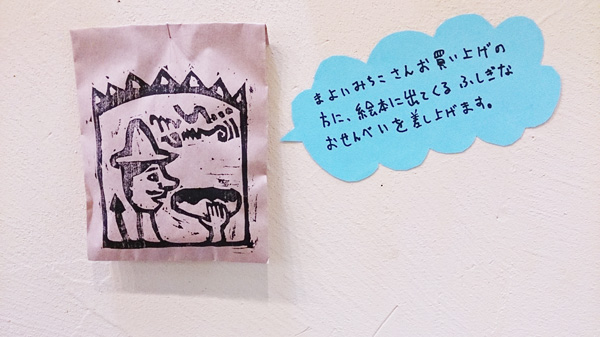 まよいみちこさんお買い上げの
方に、絵本に出てくるふしぎな
おせんべいを差し上げます。